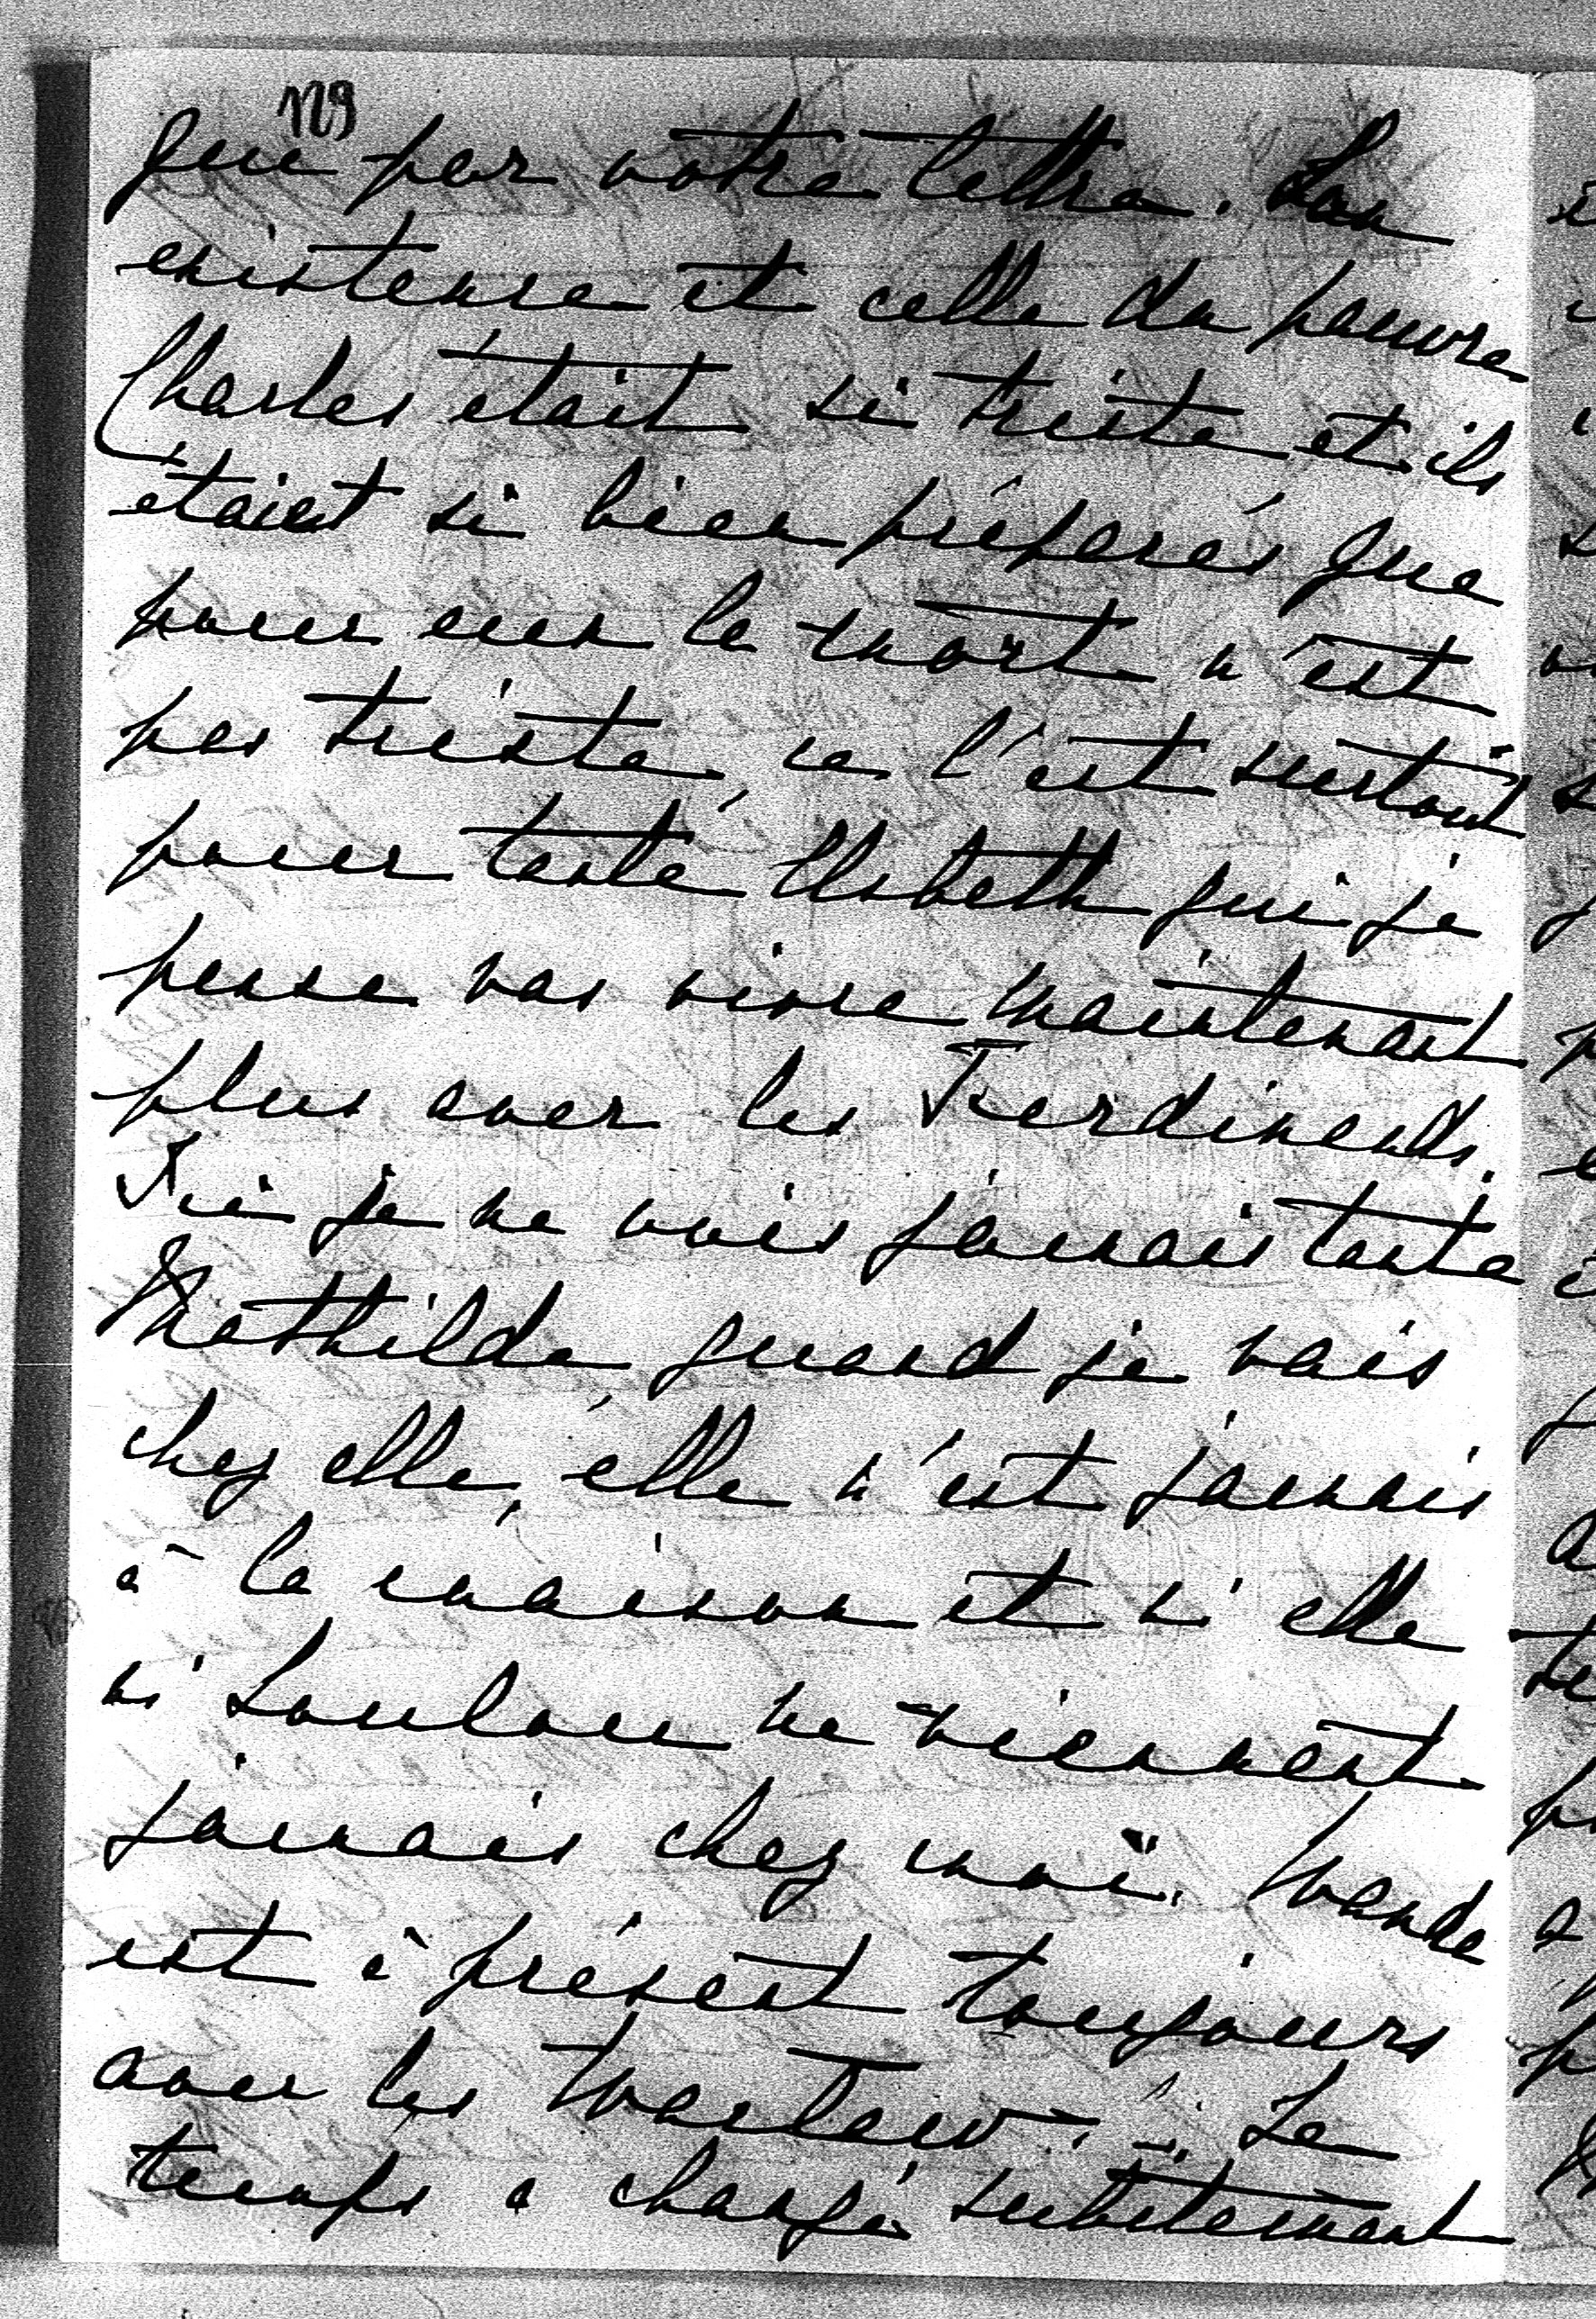 129
que par votre lettre. Son
existence et celle du pauvre
Charles était si triste et ils
étaient si bien préparés que
pour eux la mort n'est
pas triste, ce l'est surtout
pour tante Elsbeth qui je
pense vas vivre maintenant
plus avec les Ferdinands.
Ici je ne vois jamais tante
Mathilde, quand je vais
chez elle, elle n'est jamais
à la maison et ni elle
ni Loulou ne viennent
jamais chez moi. Wanda
est à présent toujours
avec les Waclaw. Le
temps a changé subitement